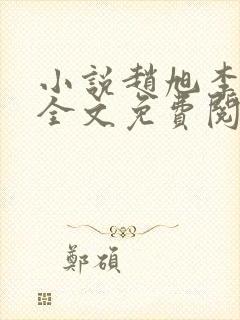 小說趙旭李
全文免費閱
鄭碩